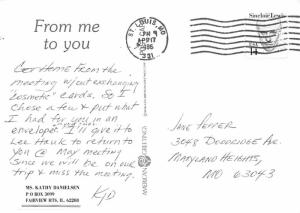 From me
to you
ST LOUIS, MO
PM
APR 17
1995
Sinclair Lewis
14
Got Home From the
meeting w/out exchanging
"cosmetic" cards. So I
chose a few & put what
I had for you in an
envelope. I'll give it to
Lee Hauk to return to
you @ May meeting
since we will be on our
trip & miss the meeting.
KJD
MS. KATHY DANIELSEN
P O BOX 3099
FAIRVIEW HTS, IL 62208
AMERICAN GREETINGS
JANE PEFFER
3048 DODDRIDGE AVE
MARYLAND HEIGHTS,
MO 63043